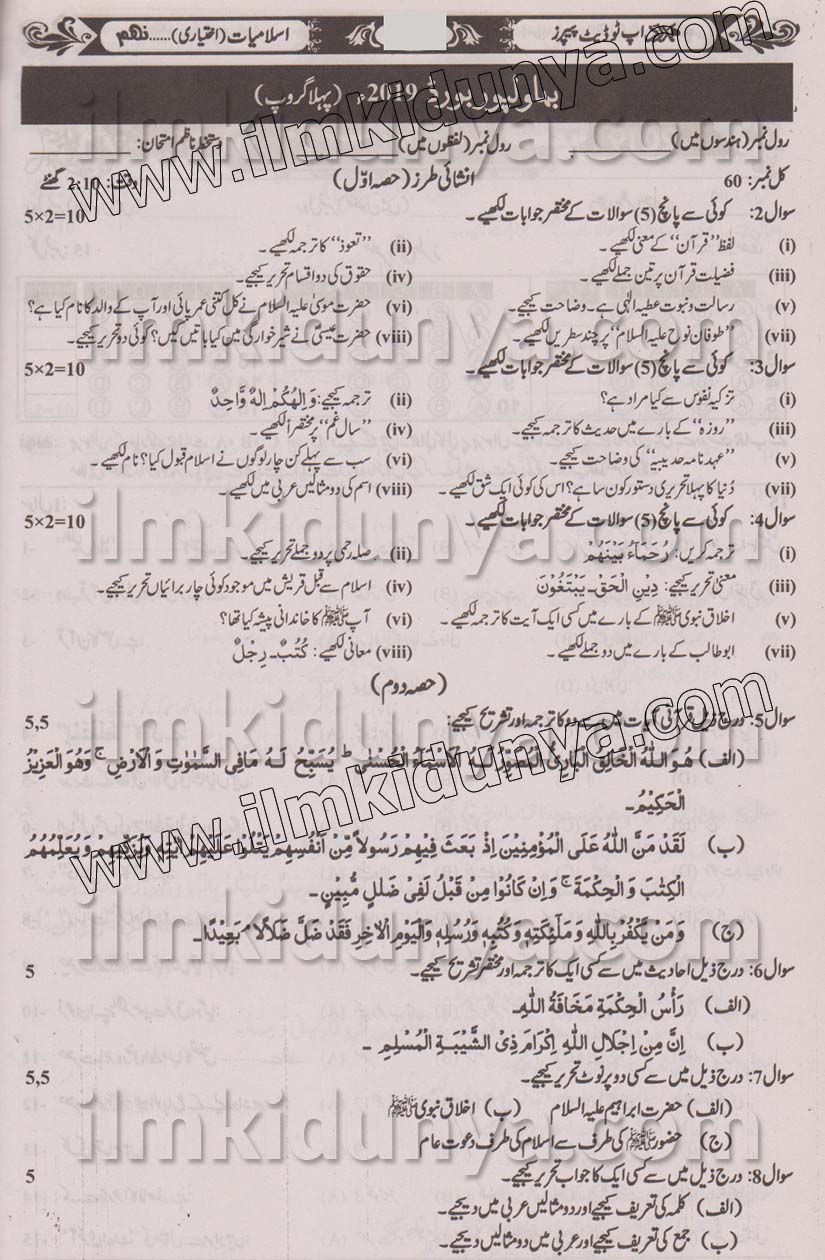 اپ ٹو ڈیٹ پیپرز
اسلامیات (اختیاری)......نہم
بہاولپور بورڈ 2019ء (پہلا گروپ)
رول نمبر (ہندسوں میں) ______ رول نمبر (لفظوں میں) ______ دستخط ناظم امتحان: ______
کل نمبر: 60 انشائی طرز (حصہ اوّل) وقت: 2:10 گھنٹے
سوال2: کوئی سے پانچ (5) سوالات کے مختصر جوابات لکھیے۔ 5×2=10
(i) لفظ ”قرآن“ کے معنی لکھیے۔ (ii) ”تعوذ“ کا ترجمہ لکھیے۔
(iii) فضیلت قرآن پر تین جملے لکھیے۔ (iv) حقوق کی دو اقسام تحریر کیجیے۔
(v) رسالت و نبوت عطیہ الٰہی ہے۔ وضاحت کیجیے۔ (vi) حضرت موسیٰ علیہ السلام نے کل کتنی عمر پائی اور آپ کے والد کا نام کیا ہے؟
(vii) ”طوفان نوح علیہ السلام“ پر چند سطریں لکھیے۔ (viii) حضرت عیسیٰؑ نے شیر خوارگی میں کیا باتیں کیں؟ کوئی دو تحریر کیجیے۔
سوال3: کوئی سے پانچ (5) سوالات کے مختصر جوابات لکھیے۔ 5×2=10
(i) تزکیہ نفوس سے کیا مراد ہے؟ (ii) ترجمہ کیجیے: وَاِلٰهُكُمْ اِلٰهٌ وَّاحِدٌ
(iii) ”روزہ“ کے بارے میں حدیث کا ترجمہ کیجیے۔ (iv) ”سال غم“ پر مختصراً لکھیے۔
(v) ”عہد نامہ حدیبیہ“ کی وضاحت کیجیے۔ (vi) سب سے پہلے کن چار لوگوں نے اسلام قبول کیا؟ نام لکھیے۔
(vii) دُنیا کا پہلا تحریری دستور کون سا ہے؟ اس کی کوئی ایک شق لکھیے۔ (viii) اسم کی دو مثالیں عربی میں لکھیے۔
سوال4: کوئی سے پانچ (5) سوالات کے مختصر جوابات لکھیے۔ 5×2=10
(i) ترجمہ کریں: رُحَمَآءُ بَيْنَهُمْ (ii) صلہ رحمی پر دو جملے تحریر کیجیے۔
(iii) معنی تحریر کیجیے: دِيْنِ الْحَقِّ۔ يَبْتَغُوْنَ (iv) اسلام سے قبل قریش میں موجود کوئی چار برائیاں تحریر کیجیے۔
(v) اخلاق نبوی ﷺ کے بارے میں کسی ایک آیت کا ترجمہ لکھیے۔ (vi) آپ ﷺ کا خاندانی پیشہ کیا تھا؟
(vii) ابو طالب کے بارے میں دو جملے لکھیے۔ (viii) معانی لکھیے: كُتُبٌ۔ رِجْلٌ
(حصہ دوم)
سوال5: درج ذیل قرآنی آیات میں سے دو کا ترجمہ اور تشریح کیجیے: 5,5
(الف) هُوَ اللّٰهُ الْخَالِقُ الْبَارِئُ الْمُصَوِّرُ لَهُ الْاَسْمَآءُ الْحُسْنٰى ؕ يُسَبِّحُ لَهٗ مَا فِى السَّمٰوٰتِ وَ الْاَرْضِ ۚ وَهُوَ الْعَزِيْزُ
الْحَكِيْمُ۔
(ب) لَقَدْ مَنَّ اللّٰهُ عَلَى الْمُؤْمِنِيْنَ اِذْ بَعَثَ فِيْهِمْ رَسُوْلًا مِّنْ اَنْفُسِهِمْ يَتْلُوْا عَلَيْهِمْ اٰيٰتِهٖ وَيُزَكِّيْهِمْ وَيُعَلِّمُهُمُ
الْكِتٰبَ وَ الْحِكْمَةَ ۚ وَاِنْ كَانُوْا مِنْ قَبْلُ لَفِىْ ضَلٰلٍ مُّبِيْنٍ۔
(ج) وَمَنْ يَّكْفُرْ بِاللّٰهِ وَ مَلٰٓئِكَتِهٖ وَكُتُبِهٖ وَرُسُلِهٖ وَالْيَوْمِ الْاٰخِرِ فَقَدْ ضَلَّ ضَلٰلًا ۢ بَعِيْدًا۔
سوال6: درج ذیل احادیث میں سے کسی ایک کا ترجمہ اور مختصر تشریح کیجیے۔ 5
(الف) رَأْسُ الْحِكْمَةِ مَخَافَةُ اللّٰهِ۔
(ب) اِنَّ مِنْ اِجْلَالِ اللّٰهِ اِكْرَامَ ذِى الشَّيْبَةِ الْمُسْلِمِ۔
سوال7: درج ذیل میں سے کسی دو پر نوٹ تحریر کیجیے۔ 5,5
(الف) حضرت ابراہیم علیہ السلام (ب) اخلاق نبوی ﷺ
(ج) حضور ﷺ کی طرف سے اسلام کی طرف دعوت عام
سوال8: درج ذیل میں سے کسی ایک کا جواب تحریر کیجیے۔ 5
(الف) کلمہ کی تعریف کیجیے اور دو مثالیں عربی میں دیجیے۔
(ب) جمع کی تعریف کیجیے اور عربی میں دو مثالیں دیجیے۔
www.ilmkidunya.com
www.ilmkidunya.com
ilmkidunya.com
ilmkidunya.com
ilmkidunya.com
ilmkidunya.com
ilmkidunya.com
ilmkidunya.com